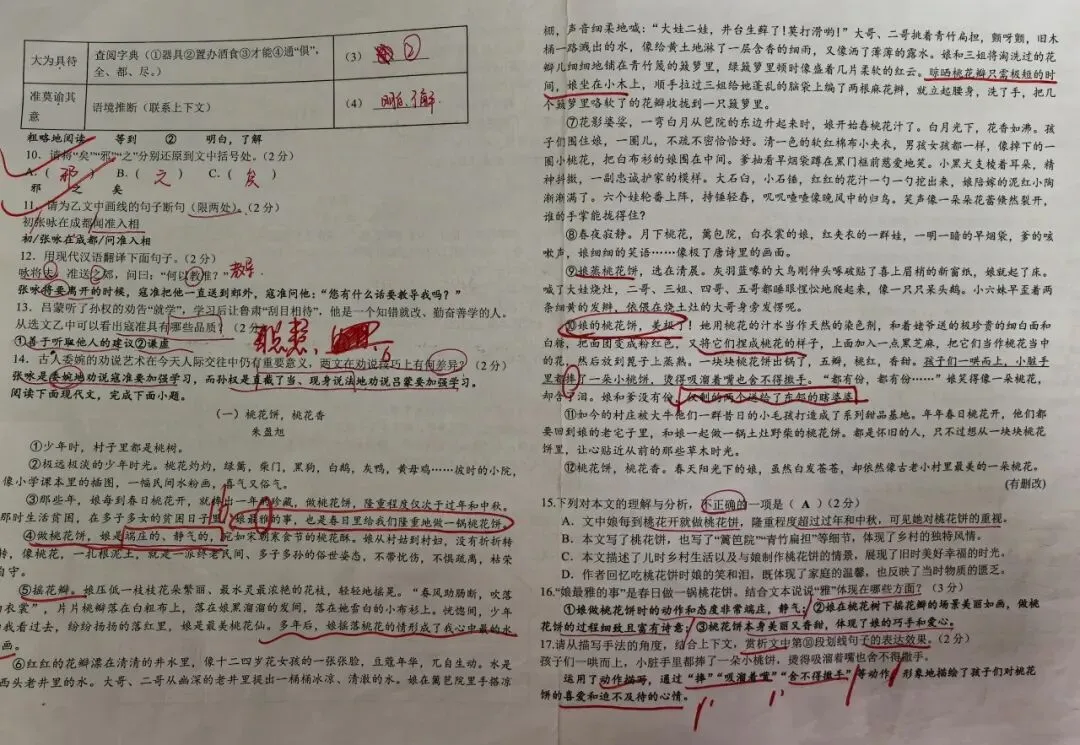 大为具待
查阅字典（①器具②置办酒食③才能④通“俱”，全、都、尽。）
（3） ②
准莫谕其意
语境推断（联系上下文）
（4） 明白、了解
粗略地阅读 等到 ② 明白，了解
10．请将“矣”“邪”“之”分别还原到文中括号处。（2分）
A.（邪） B.（之） C.（矣）
邪 之 矣
11．请为乙文中画线的句子断句（限两处）。（2分）
初张咏在成都闻准入相
初/张咏在成都/闻准入相
12．用现代汉语翻译下面句子。（2分）
咏将去，准送之郊，问曰：“何以教准？” 教导
张咏将要离开的时候，寇准把他一直送到郊外，寇准问他：“您有什么话要教导我吗？”
13．吕蒙听了孙权的劝告“就学”，学习后让鲁肃“刮目相待”，他是一个知错就改、勤奋善学的人。
从选文乙中可以看出寇准具有哪些品质？（2分）
①善于听取他人的建议②谦虚
14．古人委婉的劝说艺术在今天人际交往中仍有重要意义，两文在劝说技巧上有何差异？（2分）
张咏是委婉地劝说寇准要加强学习，而孙权是直截了当、现身说法地劝说吕蒙要加强学习。
阅读下面现代文，完成下面小题。
（一）桃花饼，桃花香
朱盈旭
①少年时，村子里都是桃树。
②极远极淡的少年时光。桃花灼灼，绿篱，柴门，黑狗，白鹅，灰鸭，黄母鸡……彼时的小院，
像小学课本里的插图，一幅民间水粉画，喜气又俗气。
③那些年，娘每到春日桃花开，就捧出一年的珍藏，做桃花饼，隆重程度仅次于过年和中秋。
那时生活贫困，在多子多女的贫困日子里，娘最雅的事，也是春日里给我们隆重地做一锅桃花饼。
④做桃花饼，娘是端庄的、静气的，宛如宋朝来食节的桃花酥。娘从村姑到村妇，没有折折转
转，像桃花，一扎根泥土，就是一派终老民间、多子多孙的俗世姿态，不带忧伤，不惧疏离，枯荣
自守。
⑤摇花瓣。娘压低一枝枝花朵繁丽、最水灵最浓艳的花枝，轻轻地摇晃。“春风助肠断，吹落
白衣裳”，片片桃瓣落在白粗布上，落在娘黑溜溜的发间，落在她雪白的小布衫上。恍惚间，少年
的我看过去，纷纷扬扬的落红里，娘是最美桃花仙。多年后，娘摇落桃花的情形成了我心中最美的水
画。
⑥红红的花瓣漾在清清的井水里，像十二四岁花女孩的一张张脸，豆蔻年华，兀自生动。水是
西头老井里的水。大哥、二哥从幽深的老井里提出一桶桶冰凉、清澈的水。娘在篱笆院里手搭凉
棚，声音细柔地喊：“大娃二娃，井台生藓了！莫打滑哟！”大哥、二哥挑着青竹扁担，颤呀颤，旧木
桶一路溅出的水，像给黄土地淋了一层含香的细雨，又像洒了薄薄的露水。娘和三姐将淘洗过的花
瓣儿细细地铺在青竹篾的簸箩里，绿簸箩顿时像盛着几片柔软的红云。晾晒桃花瓣只需极短的时
间，娘坐在小木上，顺手拉过三姐给她蓬乱的脑袋上编了两根麻花辫，就立起腰身，洗了手，把几
个簸箩咯软了的花瓣收拢到一只簸箩里。
⑦花影婆娑，一弯白月从笆院的东边升起来时，娘开始舂桃花汁了。白月光下，花香如沸。孩
子们围住娘，一圈儿，不疏不密恰恰好。清一色的软红棉布小夹衣，男孩女孩都一样，像掉下的一
圈小桃花，把白布衫的娘围在中间。爹抽着早烟袋蹲在黑门框前慈爱地笑。小黑犬支棱着耳朵，精
神抖擞，一副忠诚护家的模样。大石臼，小石锤，红红的花汁一勺一勺挖出来，娘陪嫁的泥红小陶
渐渐满了。六个娃轮番上阵，持锤轻舂，叽叽喳喳像晚风中的归鸟。笑声像一朵朵花蕾倏然裂开，
谁的手掌能拢得住？
⑧春夜寂静。月下桃花，篱笆院，白衣裳的娘，红夹衣的一群娃，一明一暗的早烟袋，爹的咳
嗽声，娘细细的笑语……像极了唐诗里的画面。
⑨娘蒸桃花饼，选在清晨。灰羽蓝喙的大鸟刚伸头啄破贴了喜上眉梢的新窗纸，娘就起了床。
喊了大娃烧灶，二哥、三姐、四哥、五哥都睡眼惺忪地爬起来，像一只只呆头鹅。小六妹早歪着两
条细黄的发辫，依偎在烧土灶的大哥身旁发愣呢。
⑩娘的桃花饼，美极了！她用桃花的汁水当作天然的染色剂，和着姥爷送的极珍贵的细白面和
白糖，把面团变成粉红色，又将它们捏成桃花的样子，上面加入一点黑芝麻，把它们当作桃花当中
的花，然后放到篦子上蒸熟。一块块桃花饼出锅了，五瓣，桃红，香甜。孩子们一哄而上，小脏手
里都捧了一朵小桃饼，烫得吸溜着嘴也舍不得撒手。“都有份，都有份……”娘笑得像一朵桃花，
却含了泪。娘和爹没有份，仅剩的两个送给了东邻的瞎婆婆。
⑪如今的村庄被大牛他们一群昔日的小毛孩打造成了系列甜品基地。年年春日桃花开，他们都
要回到娘的老宅子里，和娘一起做一锅土灶野柴的桃花饼。都是怀旧的人，只不过想从一块块桃花
饼里，让心贴近从前的那些草木时光。
⑫桃花饼，桃花香。春天阳光下的娘，虽然白发苍苍，却依然像古老小村里最美的一朵桃花。
（有删改）
15.下列对本文的理解与分析，不正确的一项是（ A ）（2分）
A．文中娘每到桃花开就做桃花饼，隆重程度超过过年和中秋，可见她对桃花饼的重视。
B．本文写了桃花饼，也写了“篱笆院”“青竹扁担”等细节，体现了乡村的独特风情。
C．本文描述了儿时乡村生活以及与娘制作桃花饼的情景，展现了旧时美好幸福的时光。
D．作者回忆吃桃花饼时娘的笑和泪，既体现了家庭的温馨，也反映了当时物质的匮乏。
16.“娘最雅的事”是春日做一锅桃花饼。结合文本说说“雅”体现在哪些方面？（3分）
①娘做桃花饼时的动作和态度非常端庄，静气；②娘在桃花树下摇花瓣的场景美丽如画，做桃
花饼的过程细致且富有诗意；③桃花饼本身美丽又香甜，体现了娘的巧手和爱心。
17.请从描写手法的角度，结合上下文，赏析文中第⑩段划线句子的表达效果。（2分）
孩子们一哄而上，小脏手里都捧了一朵小桃饼，烫得吸溜着嘴也舍不得撒手。
运用了动作描写，通过“捧”“吸溜着嘴”“舍不得撒手”等动作，形象地描绘了孩子们对桃花
饼的喜爱和迫不及待的心情。